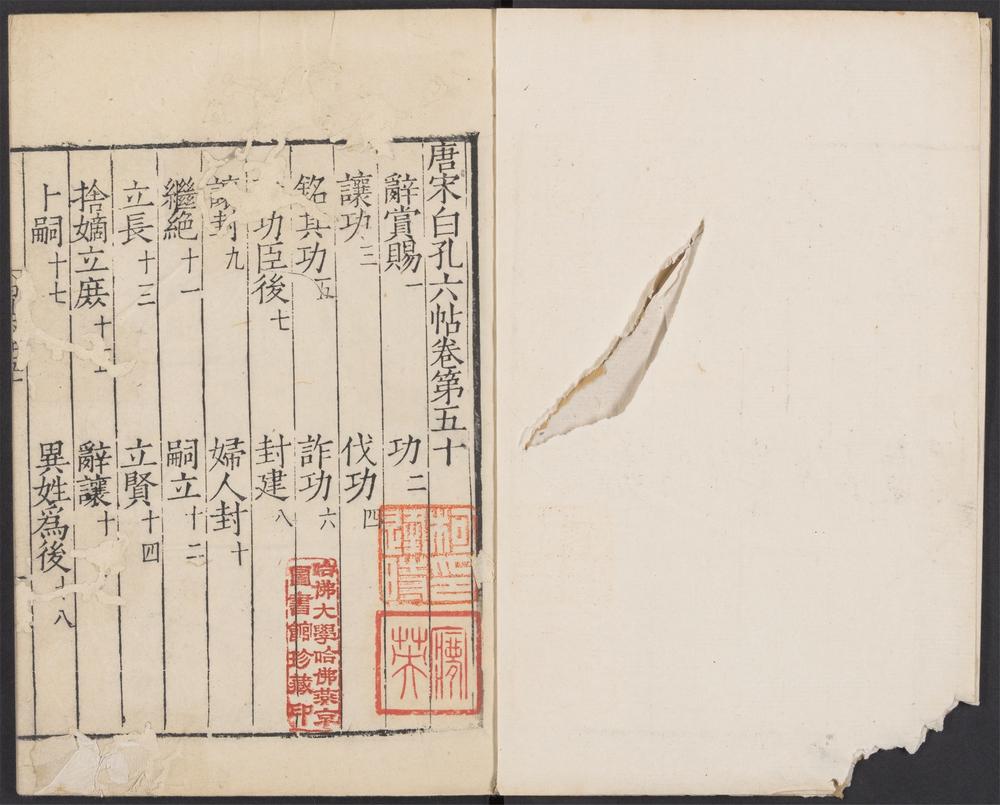 唐宋白孔六帖卷第五十
辭賞賜一 功二
讓功三 伐功四
銘其功五 詐功六
功臣後七 封建八
封九 婦人封十
繼絶十一 嗣立十二
立長十三 立賢十四
捨嫡立庻十五 辭讓十
卜嗣十七 異姓爲後十八
哈佛大學哈佛燕京
圖書館珍藏印